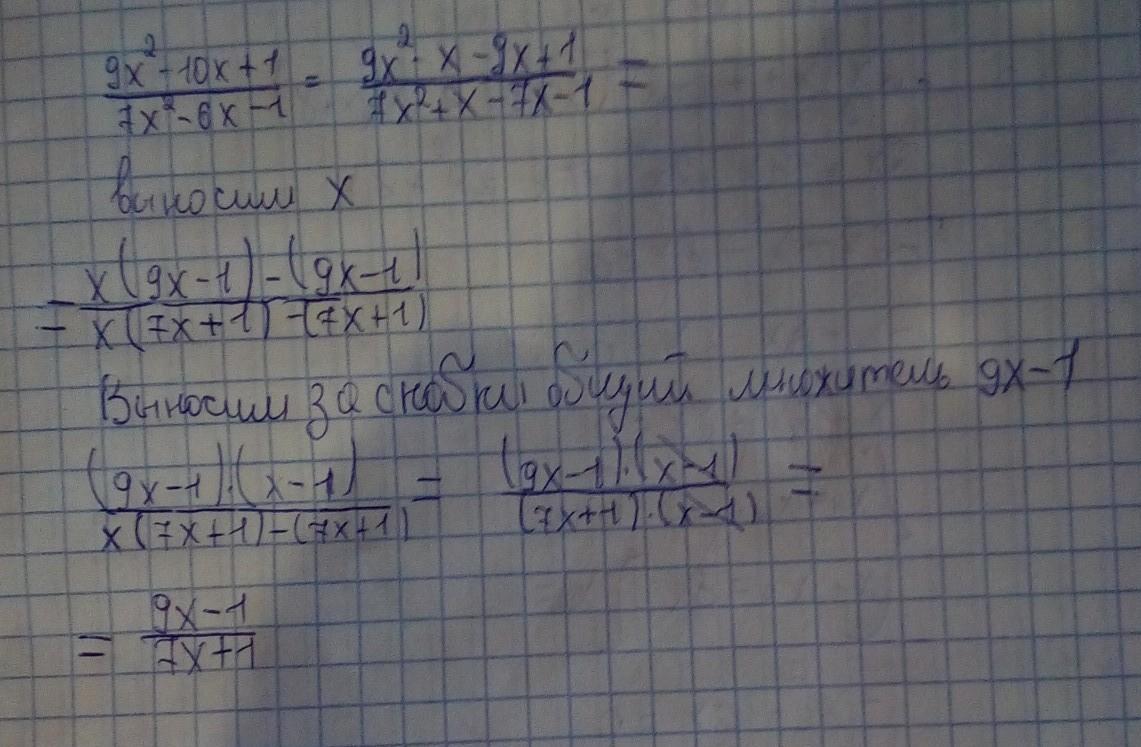 9x² - 10x + 1 / 7x² - 6x - 1 = 9x² - x - 9x + 1 / 7x² + x - 7x - 1 =
выносим x
= x(9x-1) - (9x-1) / x(7x+1) - (7x+1)
Выносим за скобки общий множитель 9x-1
(9x-1)·(x-1) / x(7x+1) - (7x+1) = (9x-1)·(x-1) / (7x+1)·(x-1) =
= 9x-1 / 7x+1